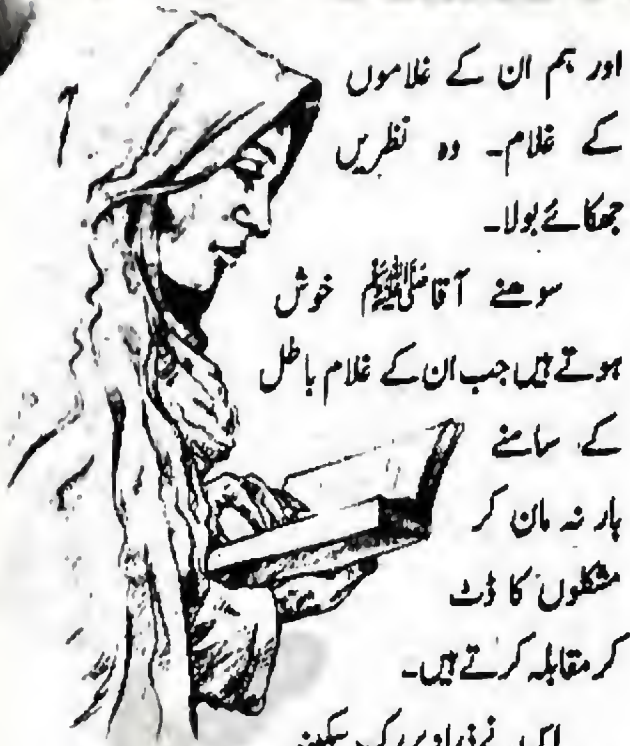 اور ہم ان کے غلاموں
کے غلام۔ وہ نظریں
جھکائے بولا۔
سوہنے آقا ﷺ خوش
ہوتے ہیں جب ان کے غلام باطل
کے سامنے
ہار نہ مان کر
مشکلوں کا ڈٹ
کر مقابلہ کرتے ہیں۔
اس نے ذرا دیر رک